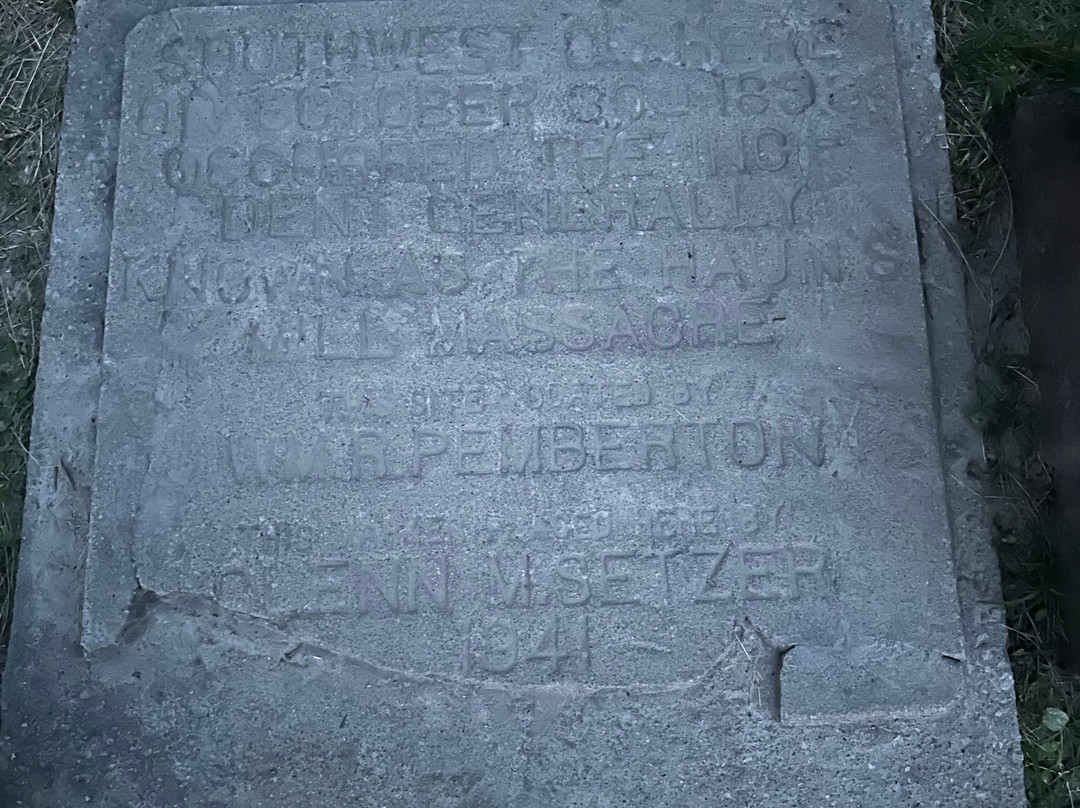 SOUTHWEST OF HERE
ON OCTOBER 30 1838
OCCURRED THE INCI
DENT GENERALLY
KNOWN AS THE HAUN'S
MILL MASSACRE
THIS SITE LOCATED BY
WM.R.PEMBERTON
THIS PLACED HERE BY
GLENN M.SETZER
1941